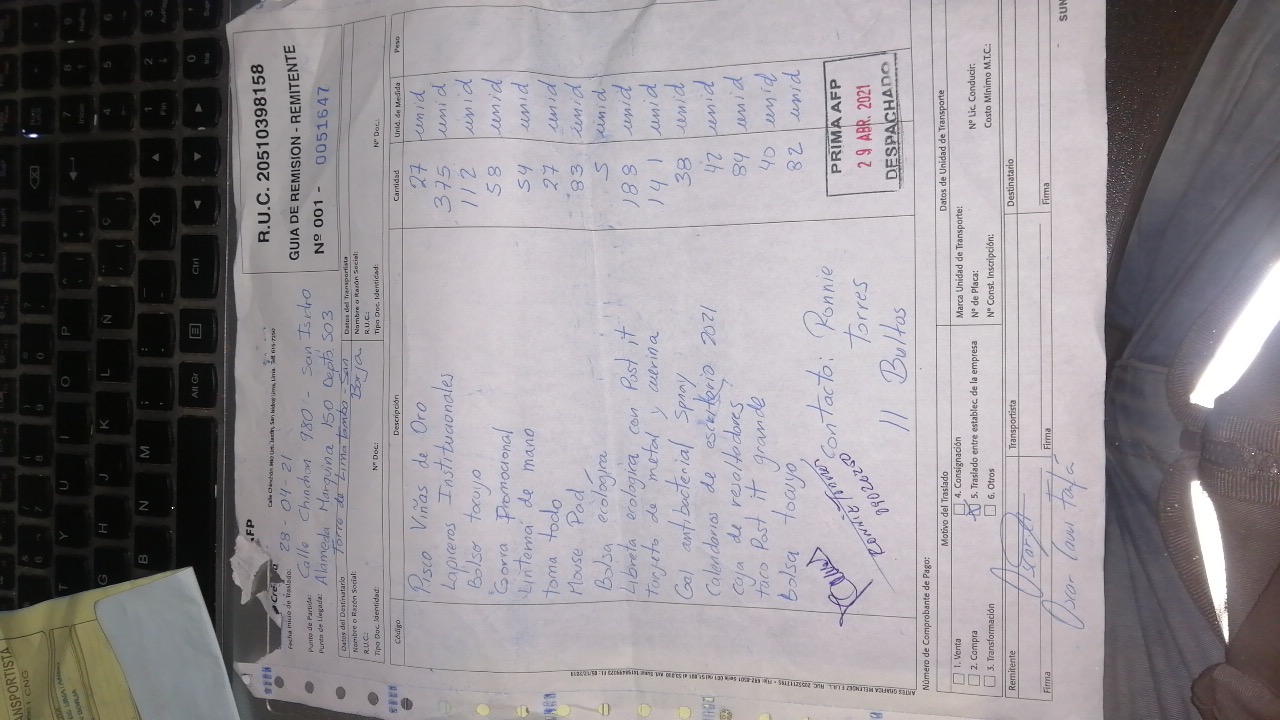 AFP
R.U.C. 20510398158
GUIA DE REMISION - REMITENTE
Nº 001 - 0051647
Fecha Inicio de Traslado: 28-04-21
Punto de Partida: Calle Chinchon 980 - San Isidro
Punto de Llegada: Alameda Marquina 150 Depto 503
Torre de Limatambo - San Borja
Datos del Destinatario
Nombre o Razón Social:
R.U.C.:
Tipo Doc. Identidad: Nº Doc.:
Datos del Transportista
Nombre o Razón Social:
R.U.C.:
Tipo Doc. Identidad: Nº Doc.:
Código Descripción Cantidad Unid. de Medida Peso
Pisco Viñas de Oro 27 unid
Lapiceros Institucionales 375 unid
Bolso tocuyo 112 unid
Gorra Promocional 58 unid
Linterna de mano 54 unid
toma todo 27 unid
Mouse Pad 83 unid
Bolsa ecologica 5 unid
Libreta ecologica con Post it 183 unid
tarjeto de metal y cuerina 141 unid
Gel antibacterial Spray 38 unid
Calendarios de escritorio 2021 42 unid
Caja de resaltadores 84 unid
taco Post it grande 40 unid
bolsa tocuyo 82 unid
contacto: Ronnie
Torres
09026250
11 Bultos
PRIMA AFP
29 ABR. 2021
DESPACHADO
Número de Comprobante de Pago:
Motivo del Traslado
1. Venta
2. Compra
3. Transformación
4. Consignación
5. Traslado entre establec. de la empresa
6. Otros
Datos de Unidad de Transporte
Marca Unidad de Transporte:
Nº de Placa:
Nº Const. Inscripción:
Nº Lic. Conducir:
Costo Mínimo M.T.C.:
Remitente Transportista Destinatario
Firma Firma Firma
SUN